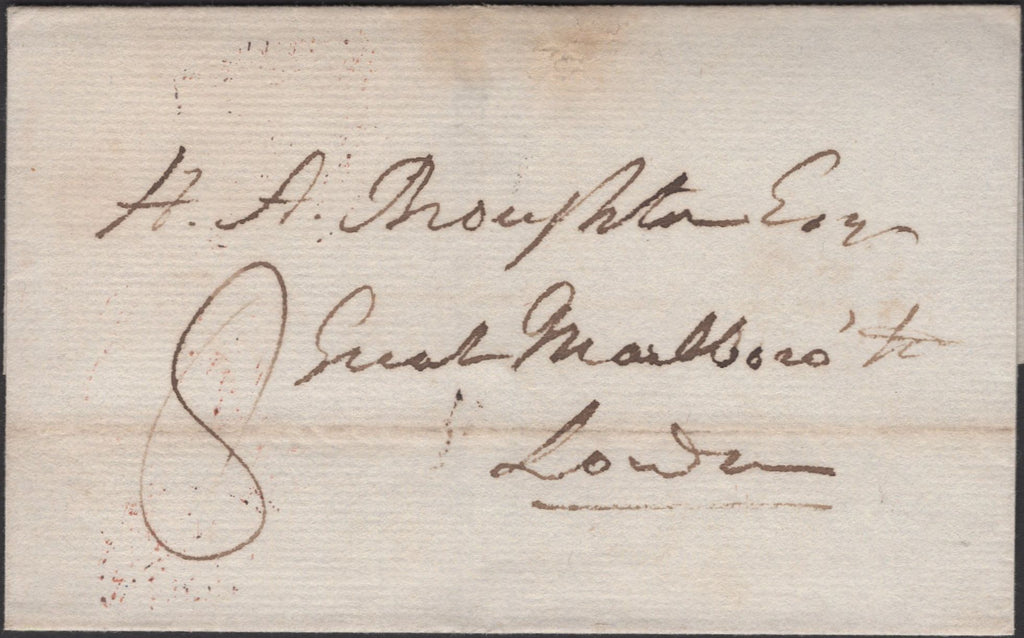 H. A. Broughton Esqr
8 Great Marlboro' St
London